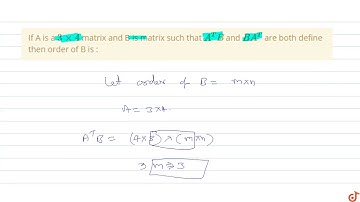 If A is a 3 × 4 matrix and B is matrix such that A^T B and B A^T are both define
then order of B is :
Let order of B = m×n
A = 3×4
A^T B = (4×3) × (m×n)
3 m=3